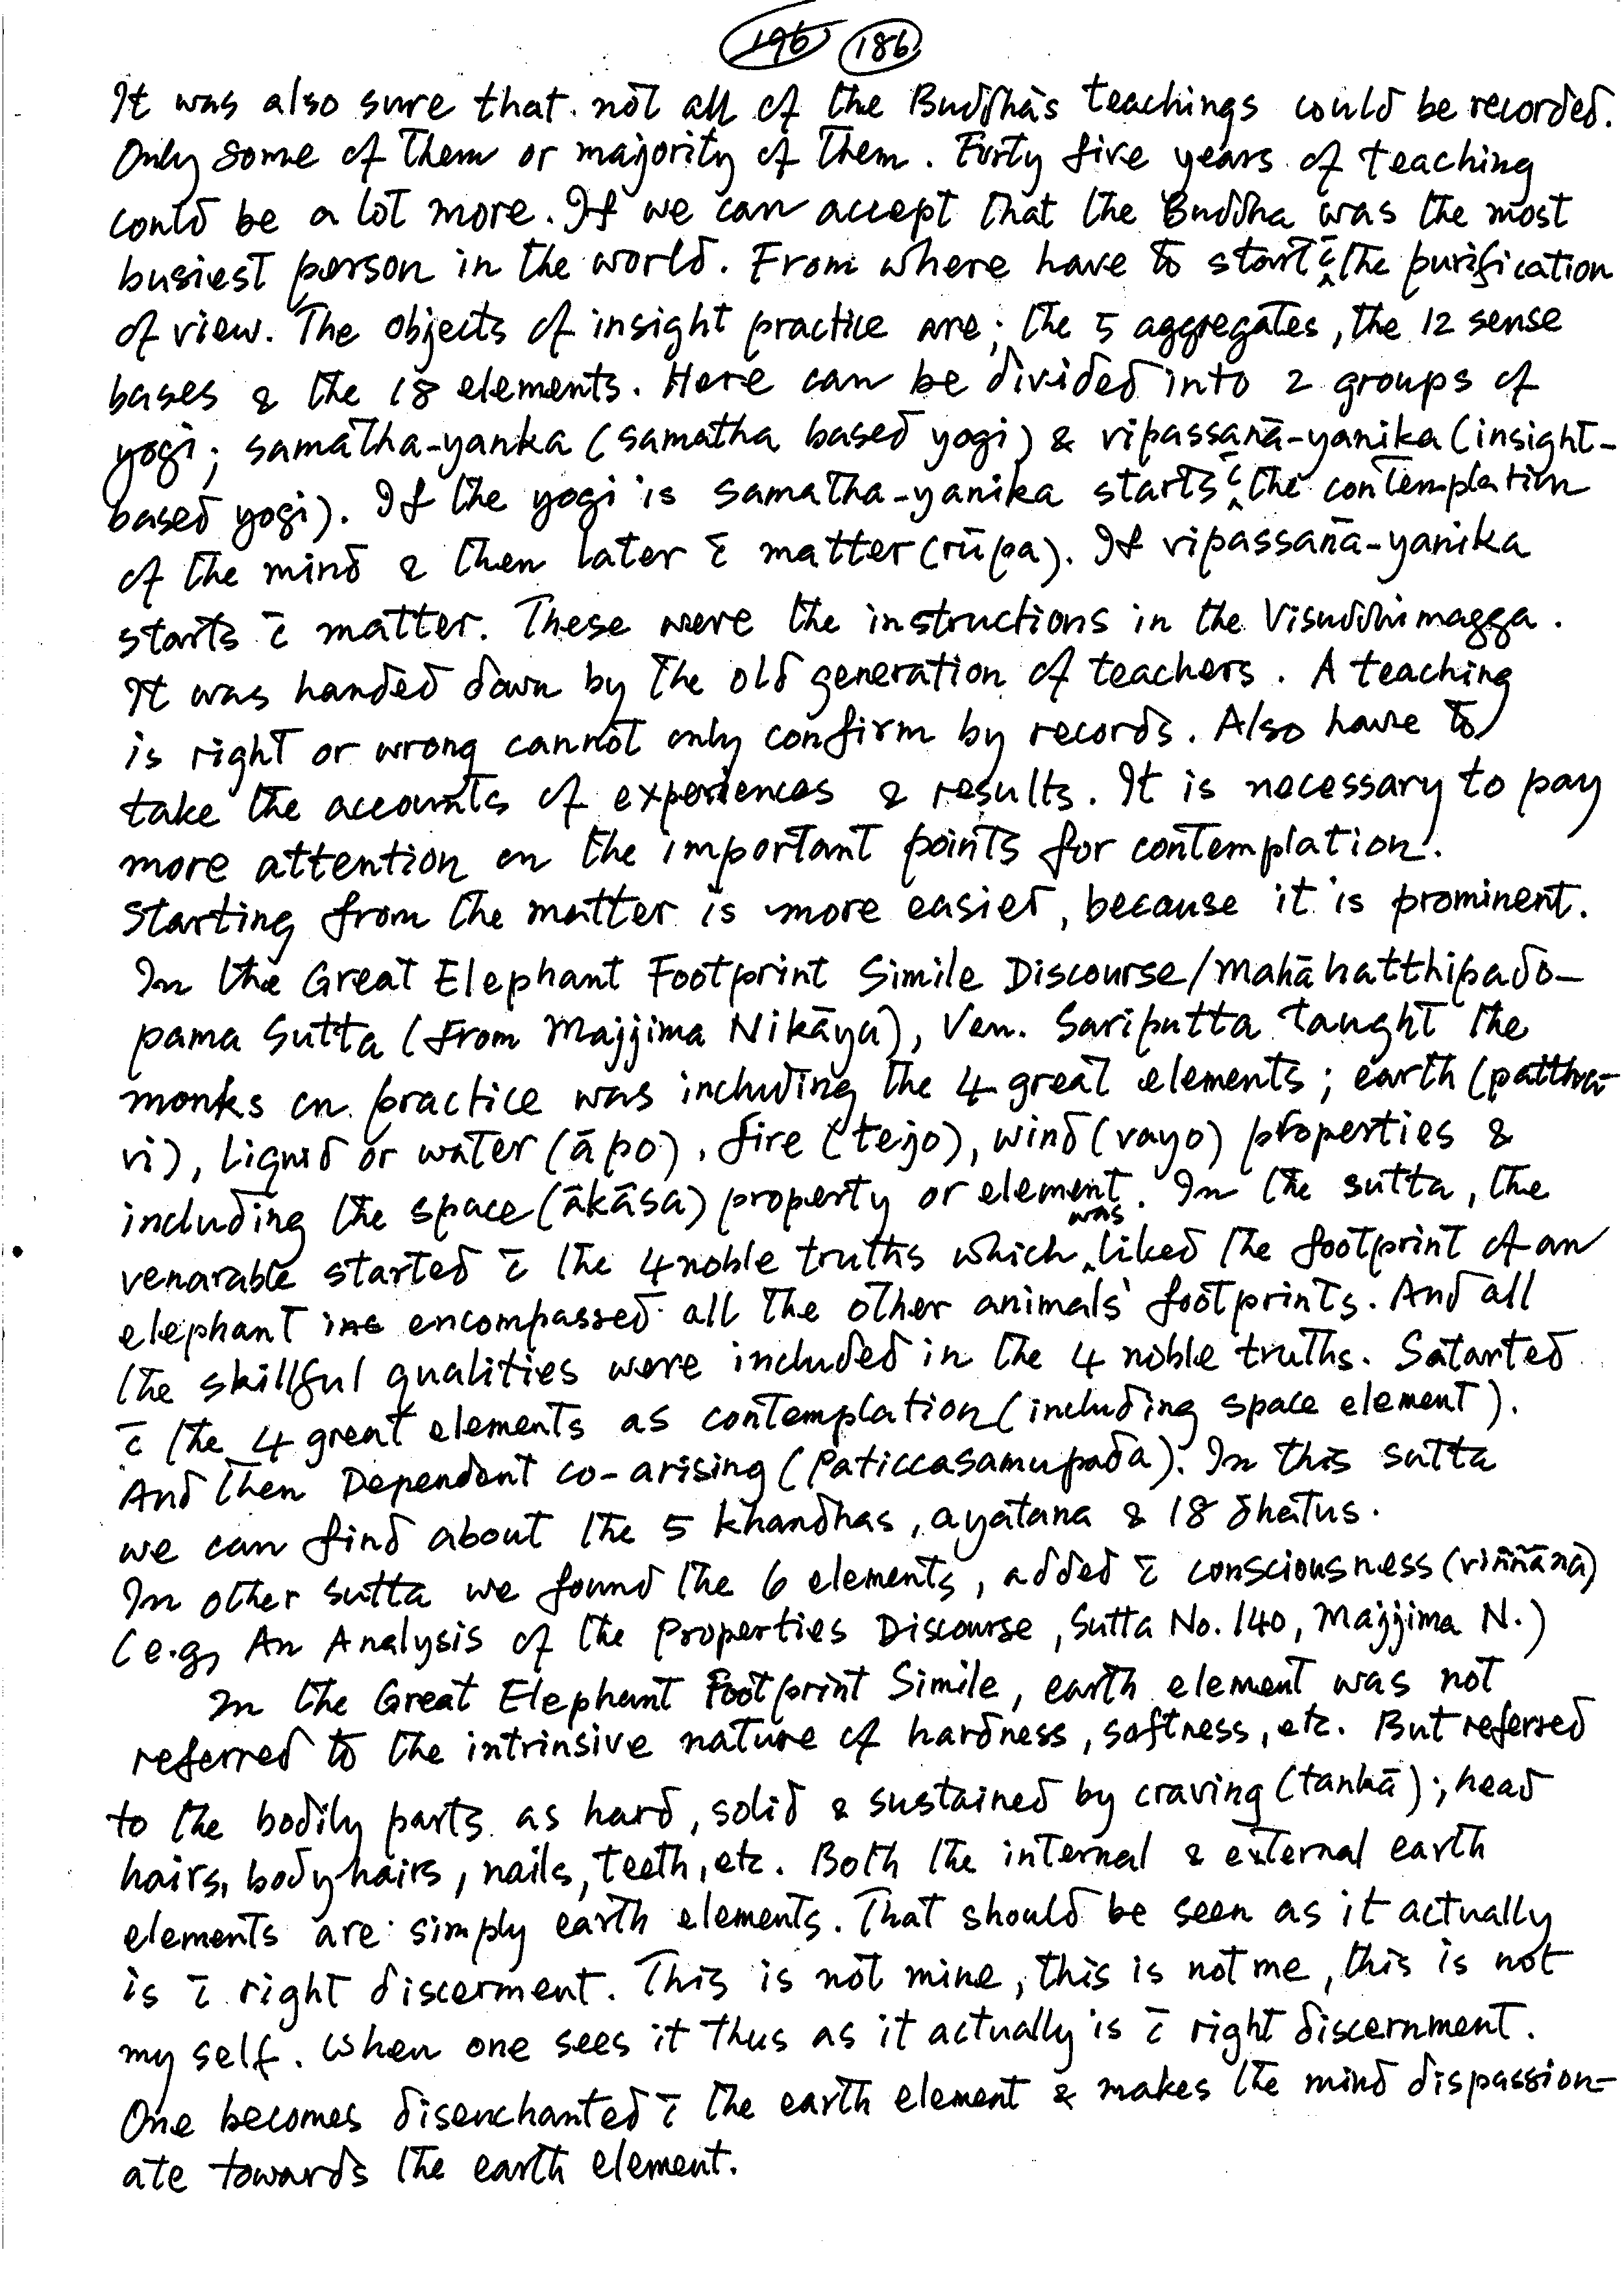 196 186
It was also sure that not all of the Buddha's teachings could be recorded.
Only some of them or majority of them. Forty five years of teaching
could be a lot more. If we can accept that the Buddha was the most
busiest person in the world. From where have to start c̄ the purification
of view. The objects of insight practice are; the 5 aggregates, the 12 sense
bases & the 18 elements. Here can be divided into 2 groups of
yogi; samatha-yanka (samatha based yogi) & vipassanā-yanika (insight-
based yogi). If the yogi is samatha-yanika starts c̄ the contemplation
of the mind & then later c̄ matter (rūpa). If vipassanā-yanika
starts c̄ matter. These were the instructions in the Visuddhimagga.
It was handed down by the old generation of teachers. A teaching
is right or wrong cannot only confirm by records. Also have to
take the accounts of experiences & results. It is necessary to pay
more attention on the important points for contemplation.
Starting from the matter is more easier, because it is prominent.
In the Great Elephant Footprint Simile Discourse/Mahāhatthipado-
pama Sutta (from Majjima Nikāya), Ven. Sariputta taught the
monks on practice was including the 4 great elements; earth (pathva-
vi), liquid or water (āpo), fire (tejo), wind (vayo) properties &
including the space (ākāsa) property or element. In the sutta, the
venarable started c̄ the 4 noble truths which was liked the footprint of an
elephant ins encompassed all the other animals' footprints. And all
the skillful qualities were included in the 4 noble truths. Satarted
c̄ the 4 great elements as contemplation (including space element).
And then Dependent co-arising (Paticcasamupada). In this sutta
we can find about the 5 khandhas, ayatana & 18 dhatus.
In other sutta we found the 6 elements, added c̄ consciousness (viññāna)
(e.g, An Analysis of the Properties Discourse, Sutta No. 140, Majjima N.)
In the Great Elephant Footprint Simile, earth element was not
referred to the intrinsive nature of hardness, softness, etc. But referred
to the bodily parts as hard, solid & sustained by craving (tankā); head
hairs, body hairs, nails, teeth, etc. Both the internal & external earth
elements are simply earth elements. That should be seen as it actually
is c̄ right discerment. This is not mine, this is not me, this is not
my self. When one sees it thus as it actually is c̄ right discernment.
One becomes disenchanted c̄ the earth element & makes the mind dispassion-
ate towards the earth element.